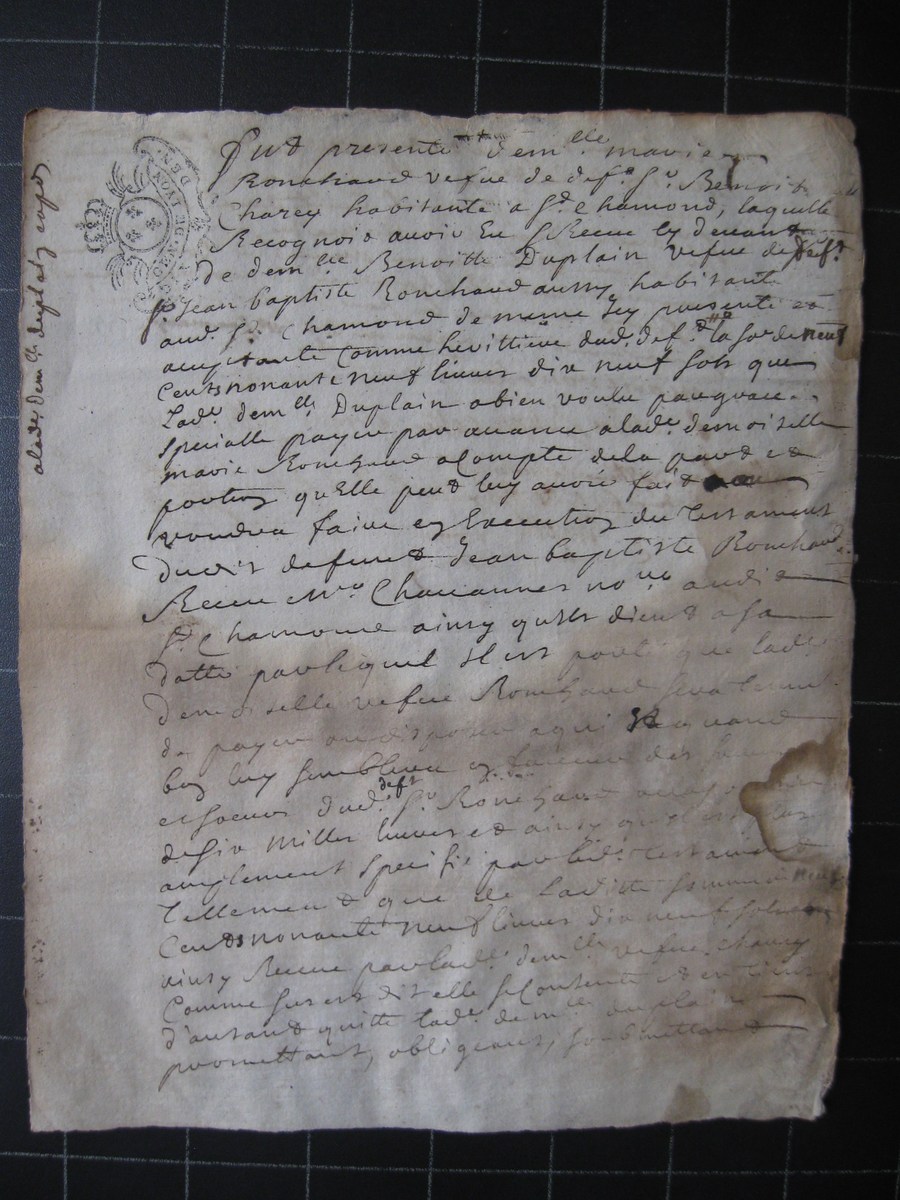 GEN. DE LYON DEN.
alade. dem.lle duplain
Fut presente dem.lle marie
Ronchaud vefue de def.t S.r Benoit
Charey habitante a S.t Chamond, laquelle
Recognoit auoir Eu & Receu cy deuant
de dem.lle Benoitte Duplain vefue de def.t
S.r Jean baptiste Ronchaud aussy habitante
aud. S.t Chamond de meme Icy presente et
acceptante Comme herittiere dud. def.t la so.e de neuf
Cents nonante neuf liures dix neuf sols que
Lad.e dem.lle Duplain a bien voulu par grace
specialle payer par auance a lad.e demoiselle
marie Ronchaud a Compte de la part et
portion qu'Elle peut luy auoir fait
voudra faire en Execution du Testament
dudit defunct Jean baptiste Ronchaud
Receu M.e Chauannes no.re audit
S.t Chamond ainsy qu'Ils dient a sa
datte par lequel il est porté que lad.e
demoiselle vefue Ronchaud sera tenue
de payer ou disposer a qui Et quand
bon luy semblera en faueur des
et soeurs dud. def.t S.r Ronchaud
de six Milles liures et ainsy qu'il est plus
amplement specifié par led. testament
Tellement que de Laditte somme de neuf
Cents nonante neuf liures dix neuf sols
ainsy Receue par lad.e dem.lle vefue charey
Comme sus est dit elle se Contente et en tient
d'autant quitte lad.e dem.lle duplain
promettant, obligeant, soubmettant